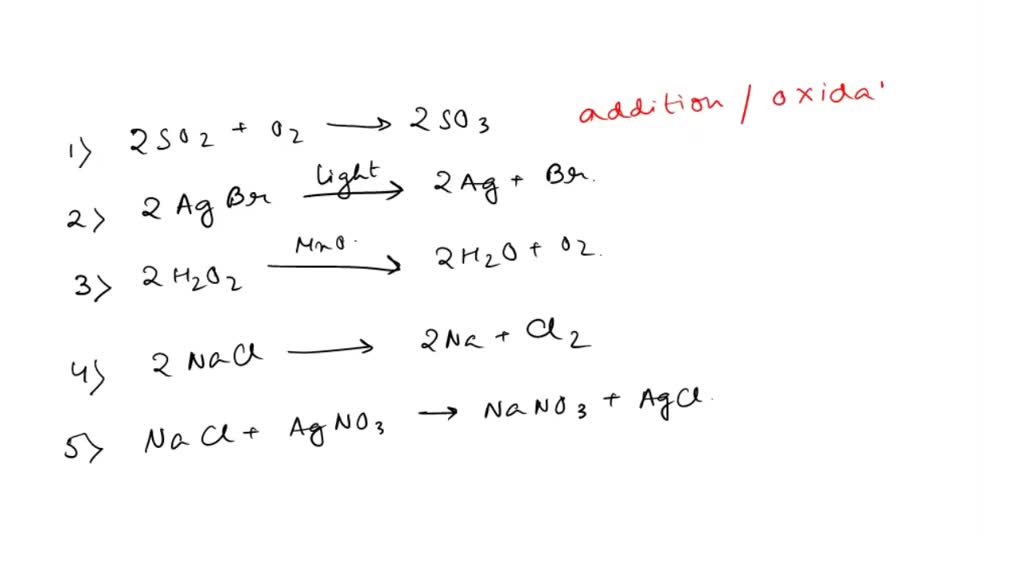 1) 2SO2 + O2 → 2SO3 addition / oxida
2) 2AgBr Light → 2Ag + Br.
3) 2H2O2 MnO. → 2H2O + O2.
4) 2NaCl → 2Na + Cl2
5) NaCl + AgNO3 → NaNO3 + AgCl.